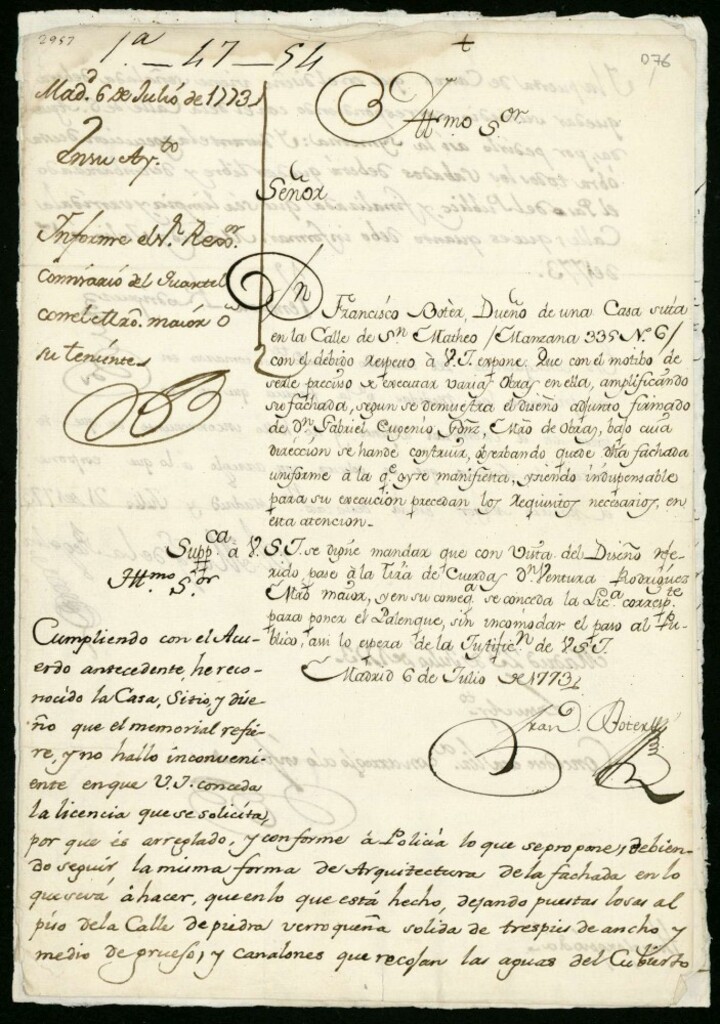 2957
1.ª - 47 - 54
D76
Mad.d 6 de Julio de 1773
En su Ay.to
Informe el S.r Rexor.
Comisario del Quartel
con el Mro. maior ó
su tenùnte
Yttmo S.or
Señor
Dn Francisco Boter, Dueño de una Casa sita
en la Calle de Sn Matheo /Manzana 335 N.º 6/
con el debido respeto à V.I. expone. Que con el motibo de
serle preciso executar varias Obras en ella, amplificando
su fachada, segun se demuestra el diseño adjunto firmado
de Dn Gabriel Eugenio Gonz, Mro de Obras, bajo cuia
direccion se han de construir, observando quede dha fachada
uniforme à la qe oy se manifiesta, y siendo indispensable
para su execucion precedan los requisitos necesarios, en
esta atencion.
Suppca à V.S.I. se digne mandar que con vista del Diseño refe-
rido pase à la Tira de Cuerdas Dn Ventura Rodriguez
Mro maior, y en su conseqa se conceda la Lica correspte
para poner el Palenque, sin incomodar el paso al Pu-
blico, asi lo espera de la Justificn de V.S.I.
Madrid 6 de Julio de 1773
Fran.co Boter
Yttmo S.or
Cumpliendo con el Acu-
erdo antecedente, he reco-
nocido la Casa, Sitio, y dise-
ño que el memorial refie-
re, y no hallo inconveni-
ente en que V.I. conceda
la licencia que se solicita,
por que és arreglado, y conforme á Policía lo que se propone, debien-
do seguir, la misma forma de Arquitectura de la fachada en lo
que será à hacer, que en lo que está hecho, dejando puestas losas al
piso de la Calle de piedra verroqueña solida de tres pies de ancho y
medio de grueso, y canalones que recojan las aguas del Cubierto